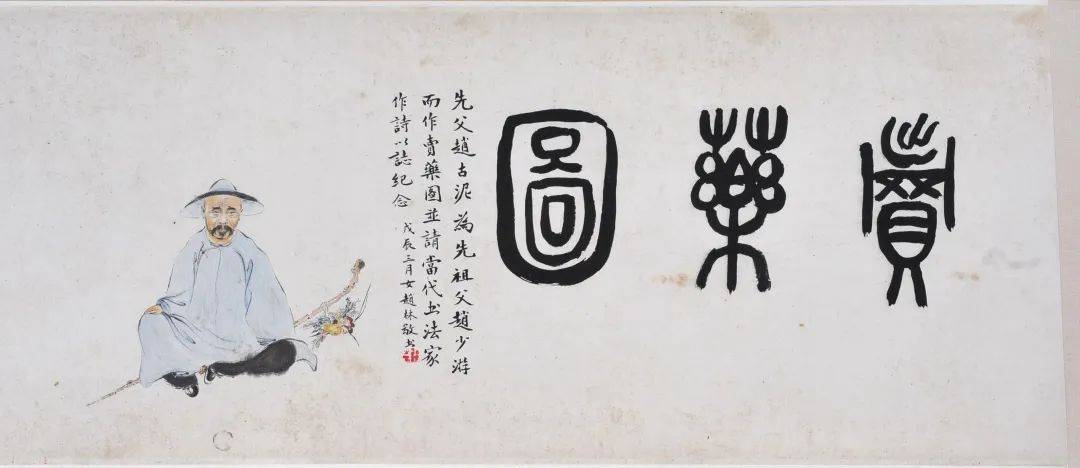 賣藥圖
先父趙古泥為先祖父趙少游
而作賣藥圖並請當代書法家
作詩以誌紀念
戊辰三月女趙林敬書